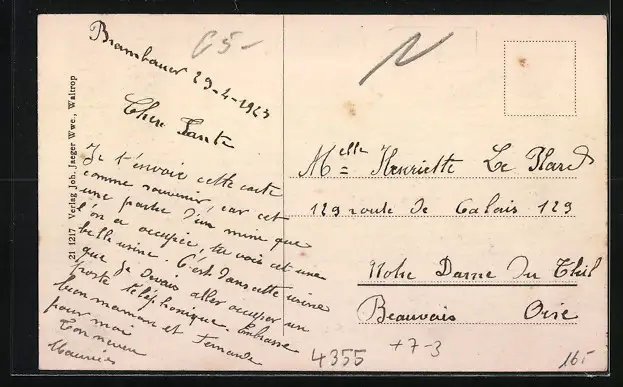 C5-
N
Brambauer 29-4-1923
Chère Tante
Je t'envoie cette carte
comme souvenir, car cet
une partie d'un mine que
l'on a occupée, tu vois cet une
belle usine. C'est dans cette usine
que je devais aller occuper un
poste téléphonique. Embrasse
bon maman et Fernande
pour moi
Ton neveu
Maurice
21 1217 Verlag Joh. Jaeger Wwe., Waltrop
Melle Henriette Le Blard
129 route de Calais 129
Notre Dame du Thil
Beauvais Oise
4355
+7-3
165